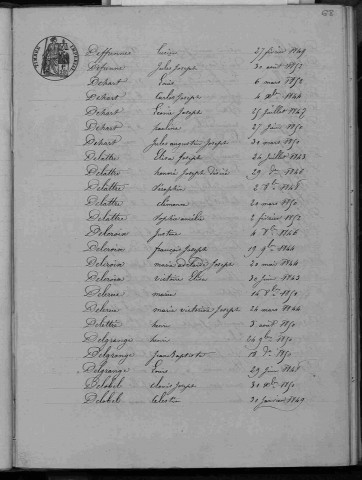 68
TIMBRE IMPERIAL
Deffrennes Louise 27 février 1849
Defrenne Jules Joseph 30 août 1852
Dehart Louis 6 mars 1852
Dehart Carlos Joseph 4 Xbre 1844
Dehart Louis Joseph 25 juillet 1847
Dehart Pauline 27 juin 1850
Dehart Jules augustin Joseph 30 mars 1850
Delattre Elisa Joseph 24 juillet 1843
Delattre henri Joseph Désiré 29 1846
Delattre Séraphin 2 8bre 1848
Delattre clémence 20 mars 1850
Delattre Sophie amélie 2 février 1852
Delcroix Justine 4 8bre 1846
Delcroix françois Joseph 19 9bre 1844
Delcroix marie adélaïde Joseph 30 mai 1844
Delcroix victoire Elise 30 juin 1843
Delerue marie 14 8bre 1850
Delerue marie victorine Joseph 24 mars 1844
Delettre henri 5 août 1850
Delgrange henri 24 9bre 1850
Delgrange Jean Baptiste 18 1850
Delgrange Louis 29 juin 1848
Delobel clovis Joseph 30 Xbre 1850
Delobel Célestin 31 janvier 1849